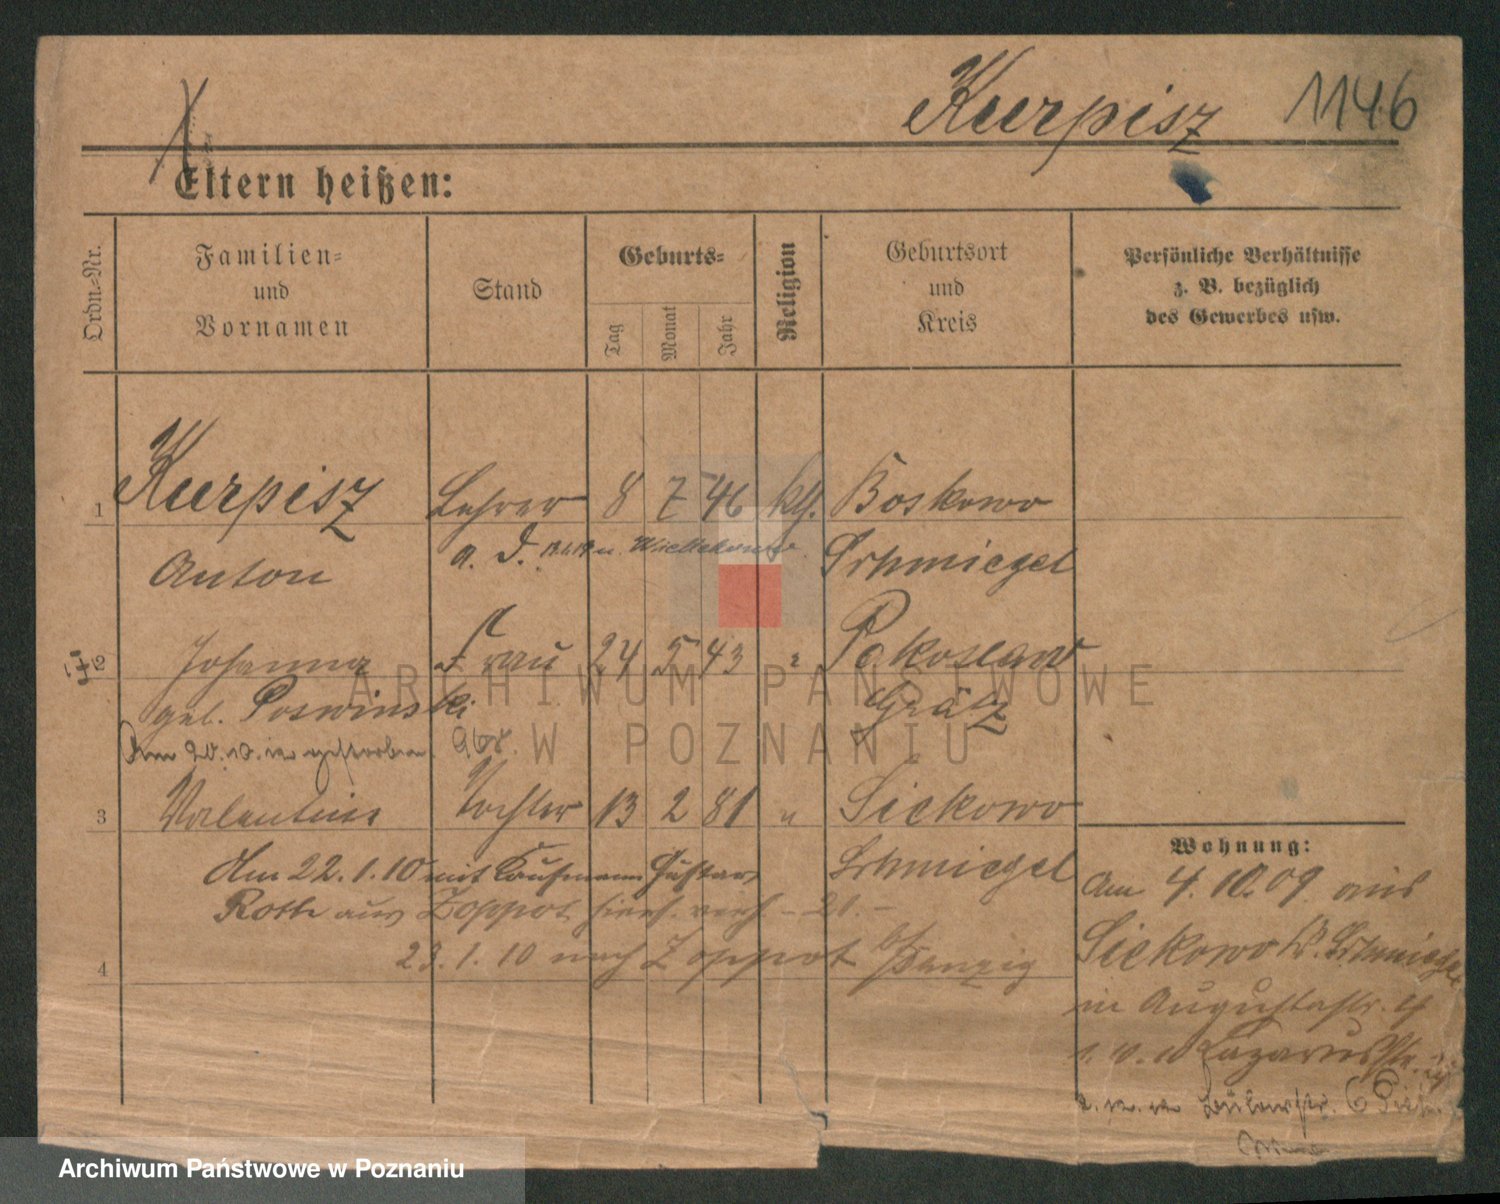 Kurpisz 1146
Eltern heißen:
Ordn.-Nr.
Familien-
und
Vornamen
Stand
Geburts-
Tag
Monat
Jahr
Religion
Geburtsort
und
Kreis
Persönliche Verhältnisse
z. B. bezüglich
des Gewerbes usw.
1 Kurpisz Lehrer 8 7 46 kth. Boskowo
Anton a. D. Schmiegel
2 Johanna Frau 24 5 43 " Pokoslaw
geb. Poswinski Grätz
Am 20. 10. gestorben
3 Valentine Tochter 13 2 81 " Siekowo
Schmiegel
Am 22. 1. 10 mit Kaufmann Gustav
Rothe aus Zoppot
23. 1. 10 nach Zoppot b/Danzig
4
Wohnung:
Am 4. 10. 09 aus
Siekowo Kr. Schmiegel
in Augustastr.
Lazarusstr.
Bülowstr. 6
ARCHIWUM PAŃSTWOWE
W POZNANIU
Archiwum Państwowe w Poznaniu